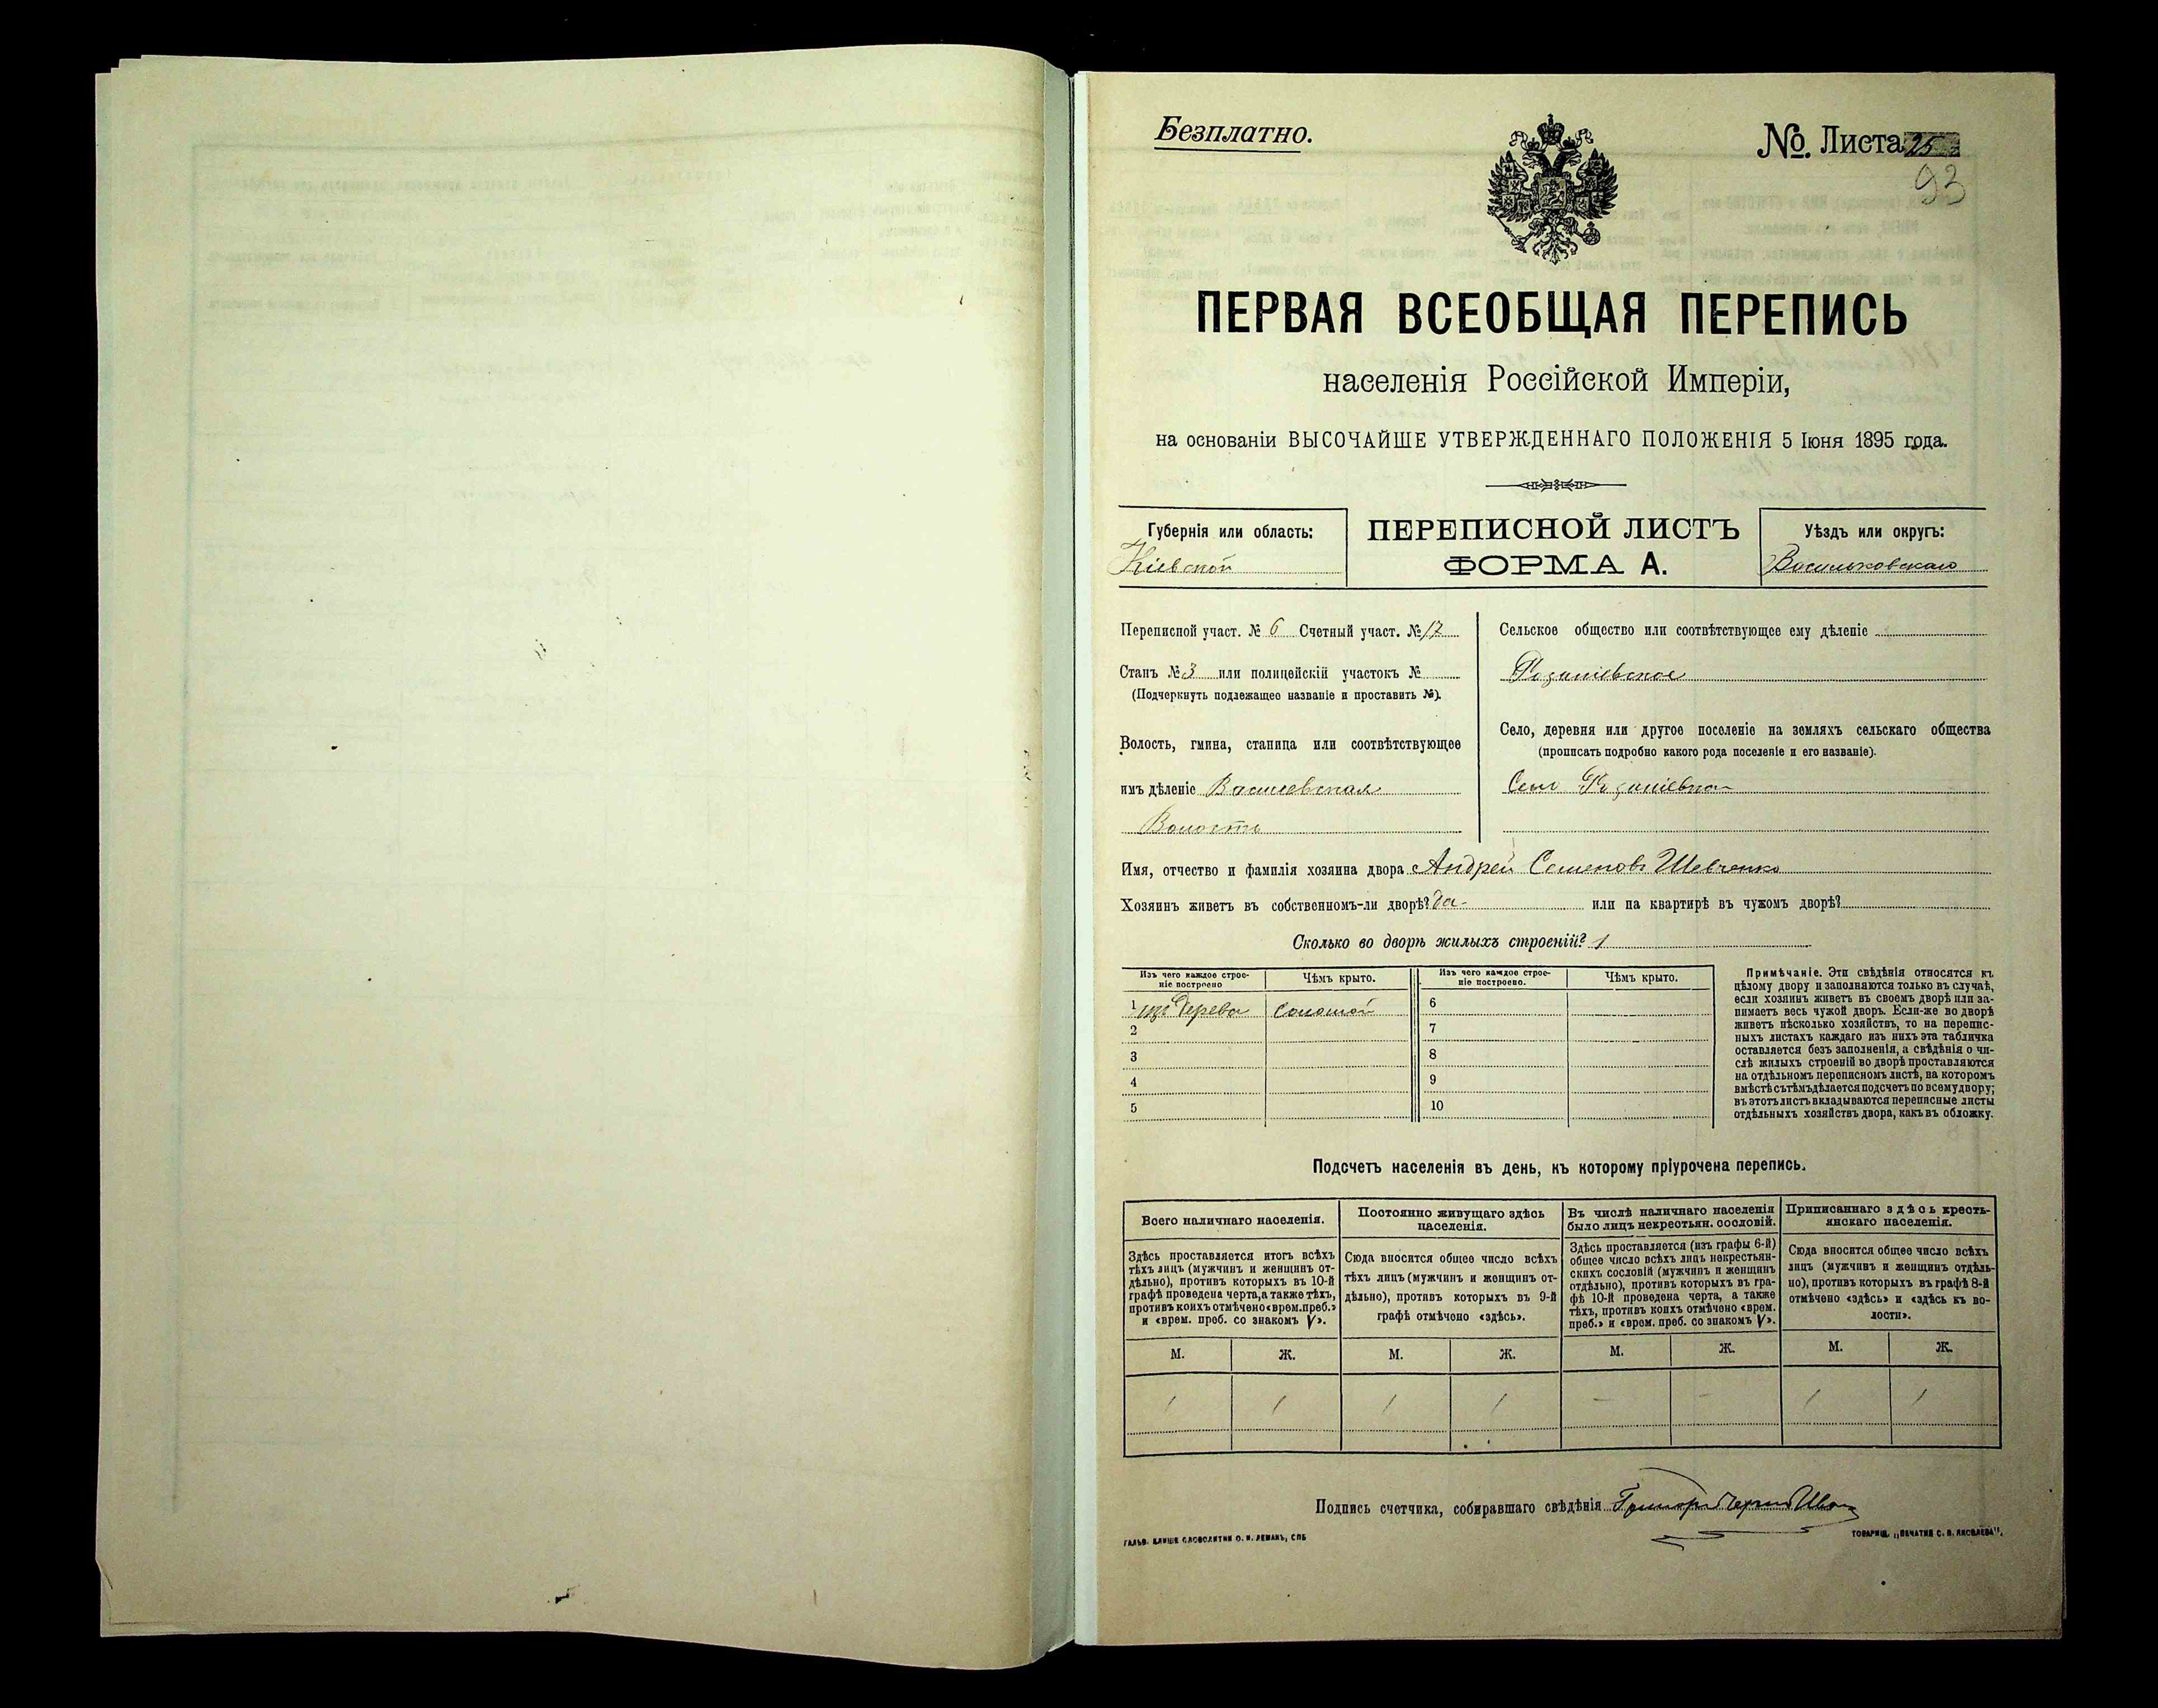 Безплатно.
№. Листа 25
93
ПЕРВАЯ ВСЕОБЩАЯ ПЕРЕПИСЬ
населенія Россійской Имперіи,
на основаніи ВЫСОЧАЙШЕ УТВЕРЖДЕННАГО ПОЛОЖЕНІЯ 5 Іюня 1895 года.
Губернія или область:
Кіевской
ПЕРЕПИСНОЙ ЛИСТЪ
ФОРМА А.
Уѣздъ или округъ:
Васильковскаго
Переписной участ. № 6 Счетный участ. № 17
Станъ № 3 или полицейскій участокъ №
(Подчеркнуть подлежащее названіе и проставить №).
Волость, гмина, станица или соотвѣтствующее
имъ дѣленіе
Волость
Сельское общество или соотвѣтствующее ему дѣленіе
Село, деревня или другое поселеніе на земляхъ сельскаго общества
(прописать подробно какого рода поселеніе и его названіе).
Село
Имя, отчество и фамилія хозяина двора Андрей Семеновъ Шевченко
Хозяинъ живетъ въ собственномъ-ли дворѣ? да или на квартирѣ въ чужомъ дворѣ?
Сколько во дворѣ жилыхъ строеній? 1
Изъ чего каждое строе-
ніе построено
Чѣмъ крыто.
Изъ чего каждое строе-
ніе построено.
Чѣмъ крыто.
1 изъ дерева соломой
2
3
4
5
6
7
8
9
10
Примѣчаніе. Эти свѣдѣнія относятся къ
цѣлому двору и заполняются только въ случаѣ,
если хозяинъ живетъ въ своемъ дворѣ или за-
нимаетъ весь чужой дворъ. Если-же во дворѣ
живетъ нѣсколько хозяйствъ, то на перепис-
ныхъ листахъ каждаго изъ нихъ эта табличка
оставляется безъ заполненія, а свѣдѣнія о чи-
слѣ жилыхъ строеній во дворѣ проставляются
на отдѣльномъ переписномъ листѣ, на которомъ
вмѣстѣ съ тѣмъ дѣлается подсчетъ по всему двору;
въ этотъ листъ вкладываются переписные листы
отдѣльныхъ хозяйствъ двора, какъ въ обложку.
Подсчетъ населенія въ день, къ которому пріурочена перепись.
Всего наличнаго населенія.
Здѣсь проставляется итогъ всѣхъ
тѣхъ лицъ (мужчинъ и женщинъ от-
дѣльно), противъ которыхъ въ 10-й
графѣ проведена черта, а также тѣхъ,
противъ коихъ отмѣчено «врем. преб.»
и «врем. преб. со знакомъ V».
Постоянно живущаго здѣсь
населенія.
Сюда вносится общее число всѣхъ
тѣхъ лицъ (мужчинъ и женщинъ от-
дѣльно), противъ которыхъ въ 9-й
графѣ отмѣчено «здѣсь».
Въ числѣ наличнаго населенія
было лицъ некрестьян. сословій.
Здѣсь проставляется (изъ графы 6-й)
общее число всѣхъ лицъ некрестьян-
скихъ сословій (мужчинъ и женщинъ
отдѣльно), противъ которыхъ въ гра-
фѣ 10-й проведена черта, а также
тѣхъ, противъ коихъ отмѣчено «врем.
преб.» и «врем. преб. со знакомъ V».
Приписаннаго здѣсь кресть-
янскаго населенія.
Сюда вносится общее число всѣхъ
лицъ (мужчинъ и женщинъ отдѣль-
но), противъ которыхъ въ графѣ 8-й
отмѣчено «здѣсь» и «здѣсь къ во-
лости».
М. Ж. М. Ж. М. Ж. М. Ж.
1 1 1 1 - - 1 1
Подпись счетчика, собиравшаго свѣдѣнія
ГАЛЬВ. КЛИШЕ СЛОВОЛИТНИ О. И. ЛЕМАНЪ, СПБ
ТОВАРИЩ. „ПЕЧАТНЯ С. П. ЯКОВЛЕВА“.